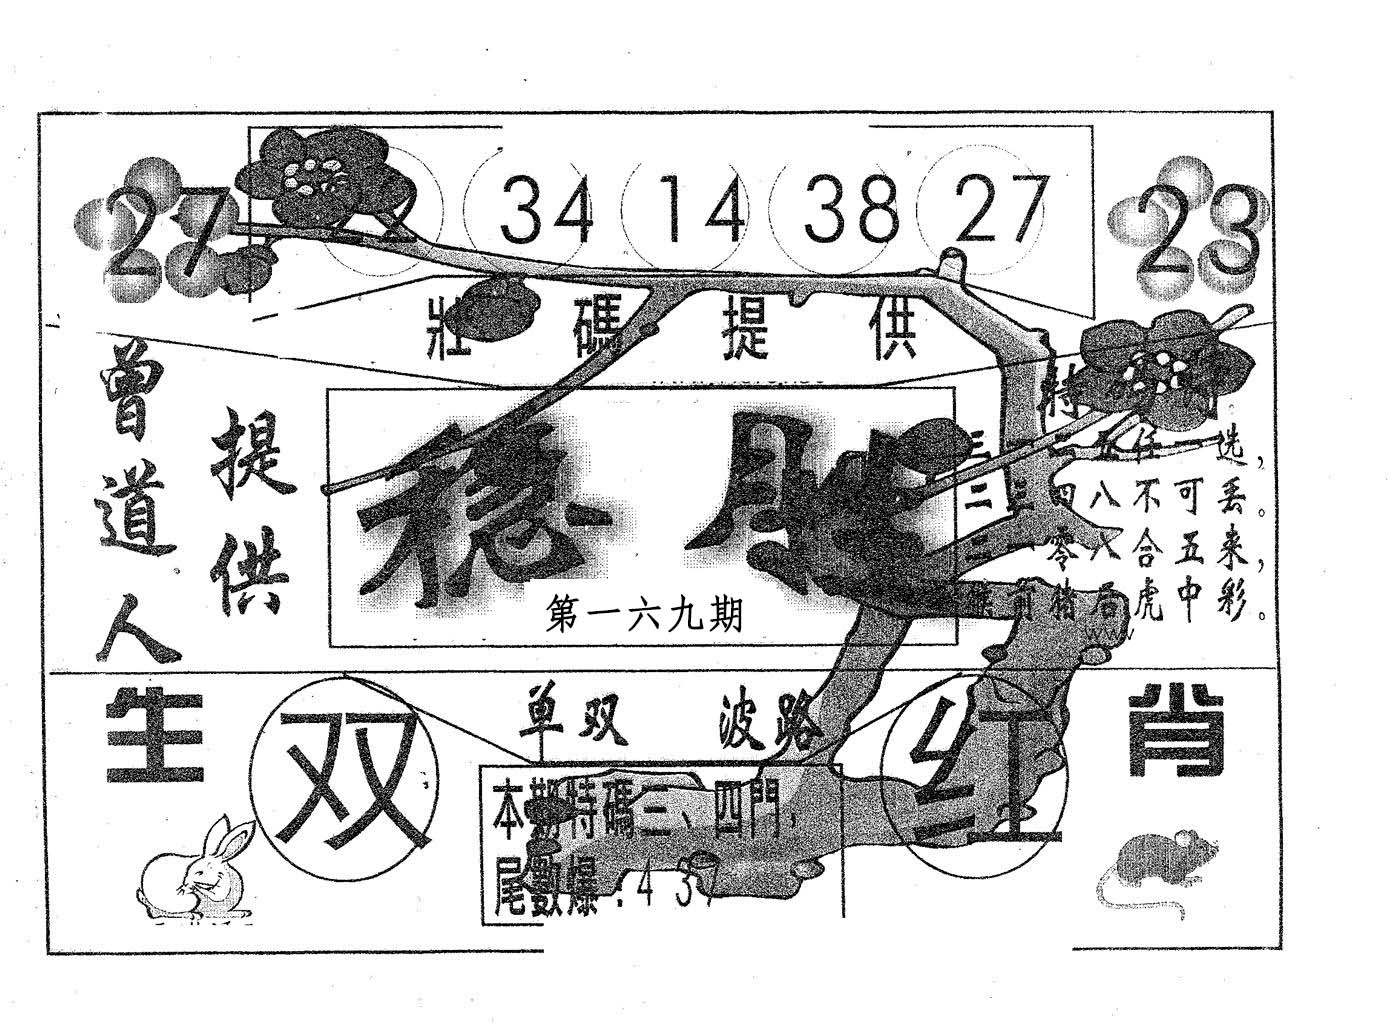 27 34 14 38 27 23
壯碼提供
曾道人
提供
稳胜
第一六九期
五任一选，
二三四八不可丢。
零八合五来，
猪后虎中彩。
www
生 双 单双 波路 红 肖
本期特碼三、四門，
尾數爆：4 3 7